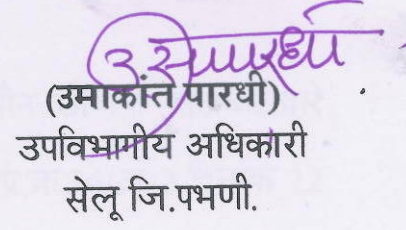 (उमाकांत पारधी)
उपविभागीय अधिकारी
सेलू जि.पभणी.